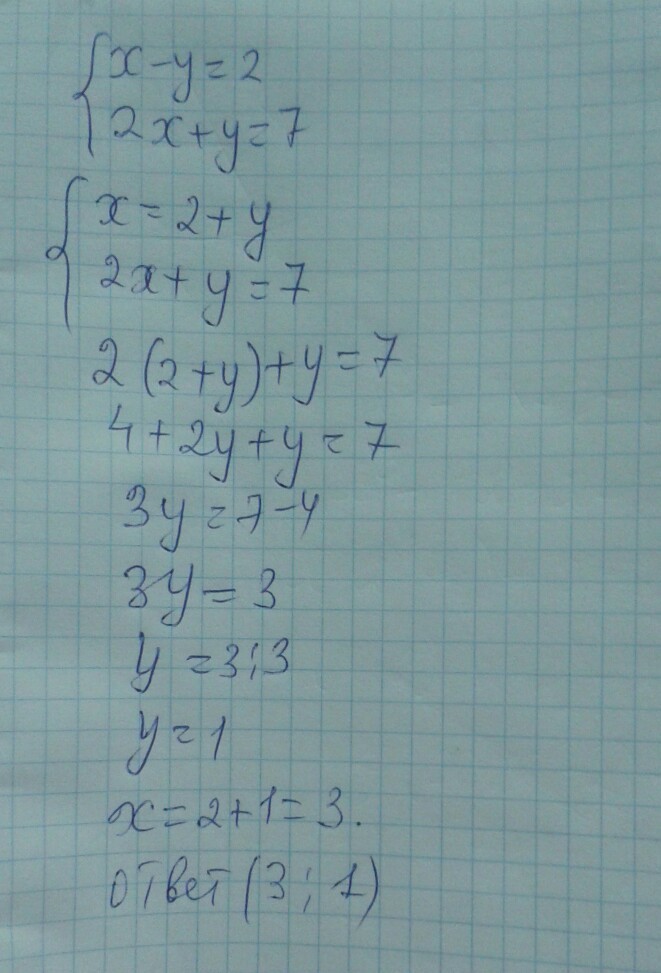 {x-y=2
2x+y=7
{x=2+y
2x+y=7
2(2+y)+y=7
4+2y+y=7
3y=7-4
3y=3
y=3:3
y=1
x=2+1=3.
ответ (3; 1)